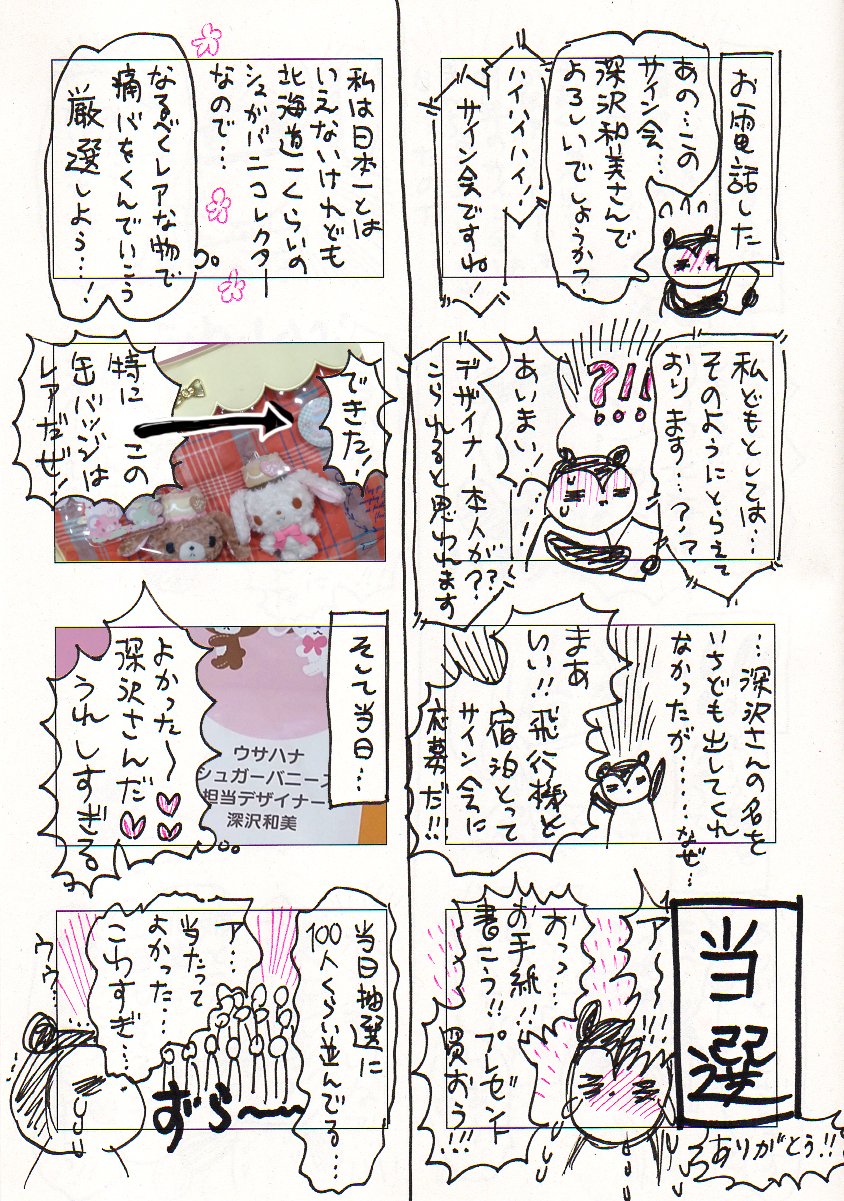 お電話した
あの…この
サイン会…
深沢和美さんで
よろしいでしょうか？
ハイハイハイ！
サイン会ですね！
私どもとしては…
そのようにとらえて
おります…？？
？！！
あいまい！
デザイナー本人が？？
こられると思われます
…深沢さんの名を
いちども出してくれ
なかったが……なぜ…
まあ
いい!!飛行機と
宿泊とって
サイン会に
応募だ!!
当選
ア〜〜〜!!
ありがとう!!
おっっ…
お手紙!!
書こう!!プレゼント
買おう!!!
私は日本一とは
いえないけれども
北海道一くらいの
シュガバニコレクター
なので…
なるべくレアな物で
痛バをくんでいこう
厳選しよう…！
できた！
特にこの
缶バッジは
レアだぜ！
そして当日…
ウサハナ
シュガーバニーズ
担当デザイナー
深沢和美
よかった〜
深沢さんだ
うれしすぎる
当日抽選に
100人くらい並んでる…
ア…
当たって
よかった…
こわすぎ…
ずら〜〜
ウゥ…